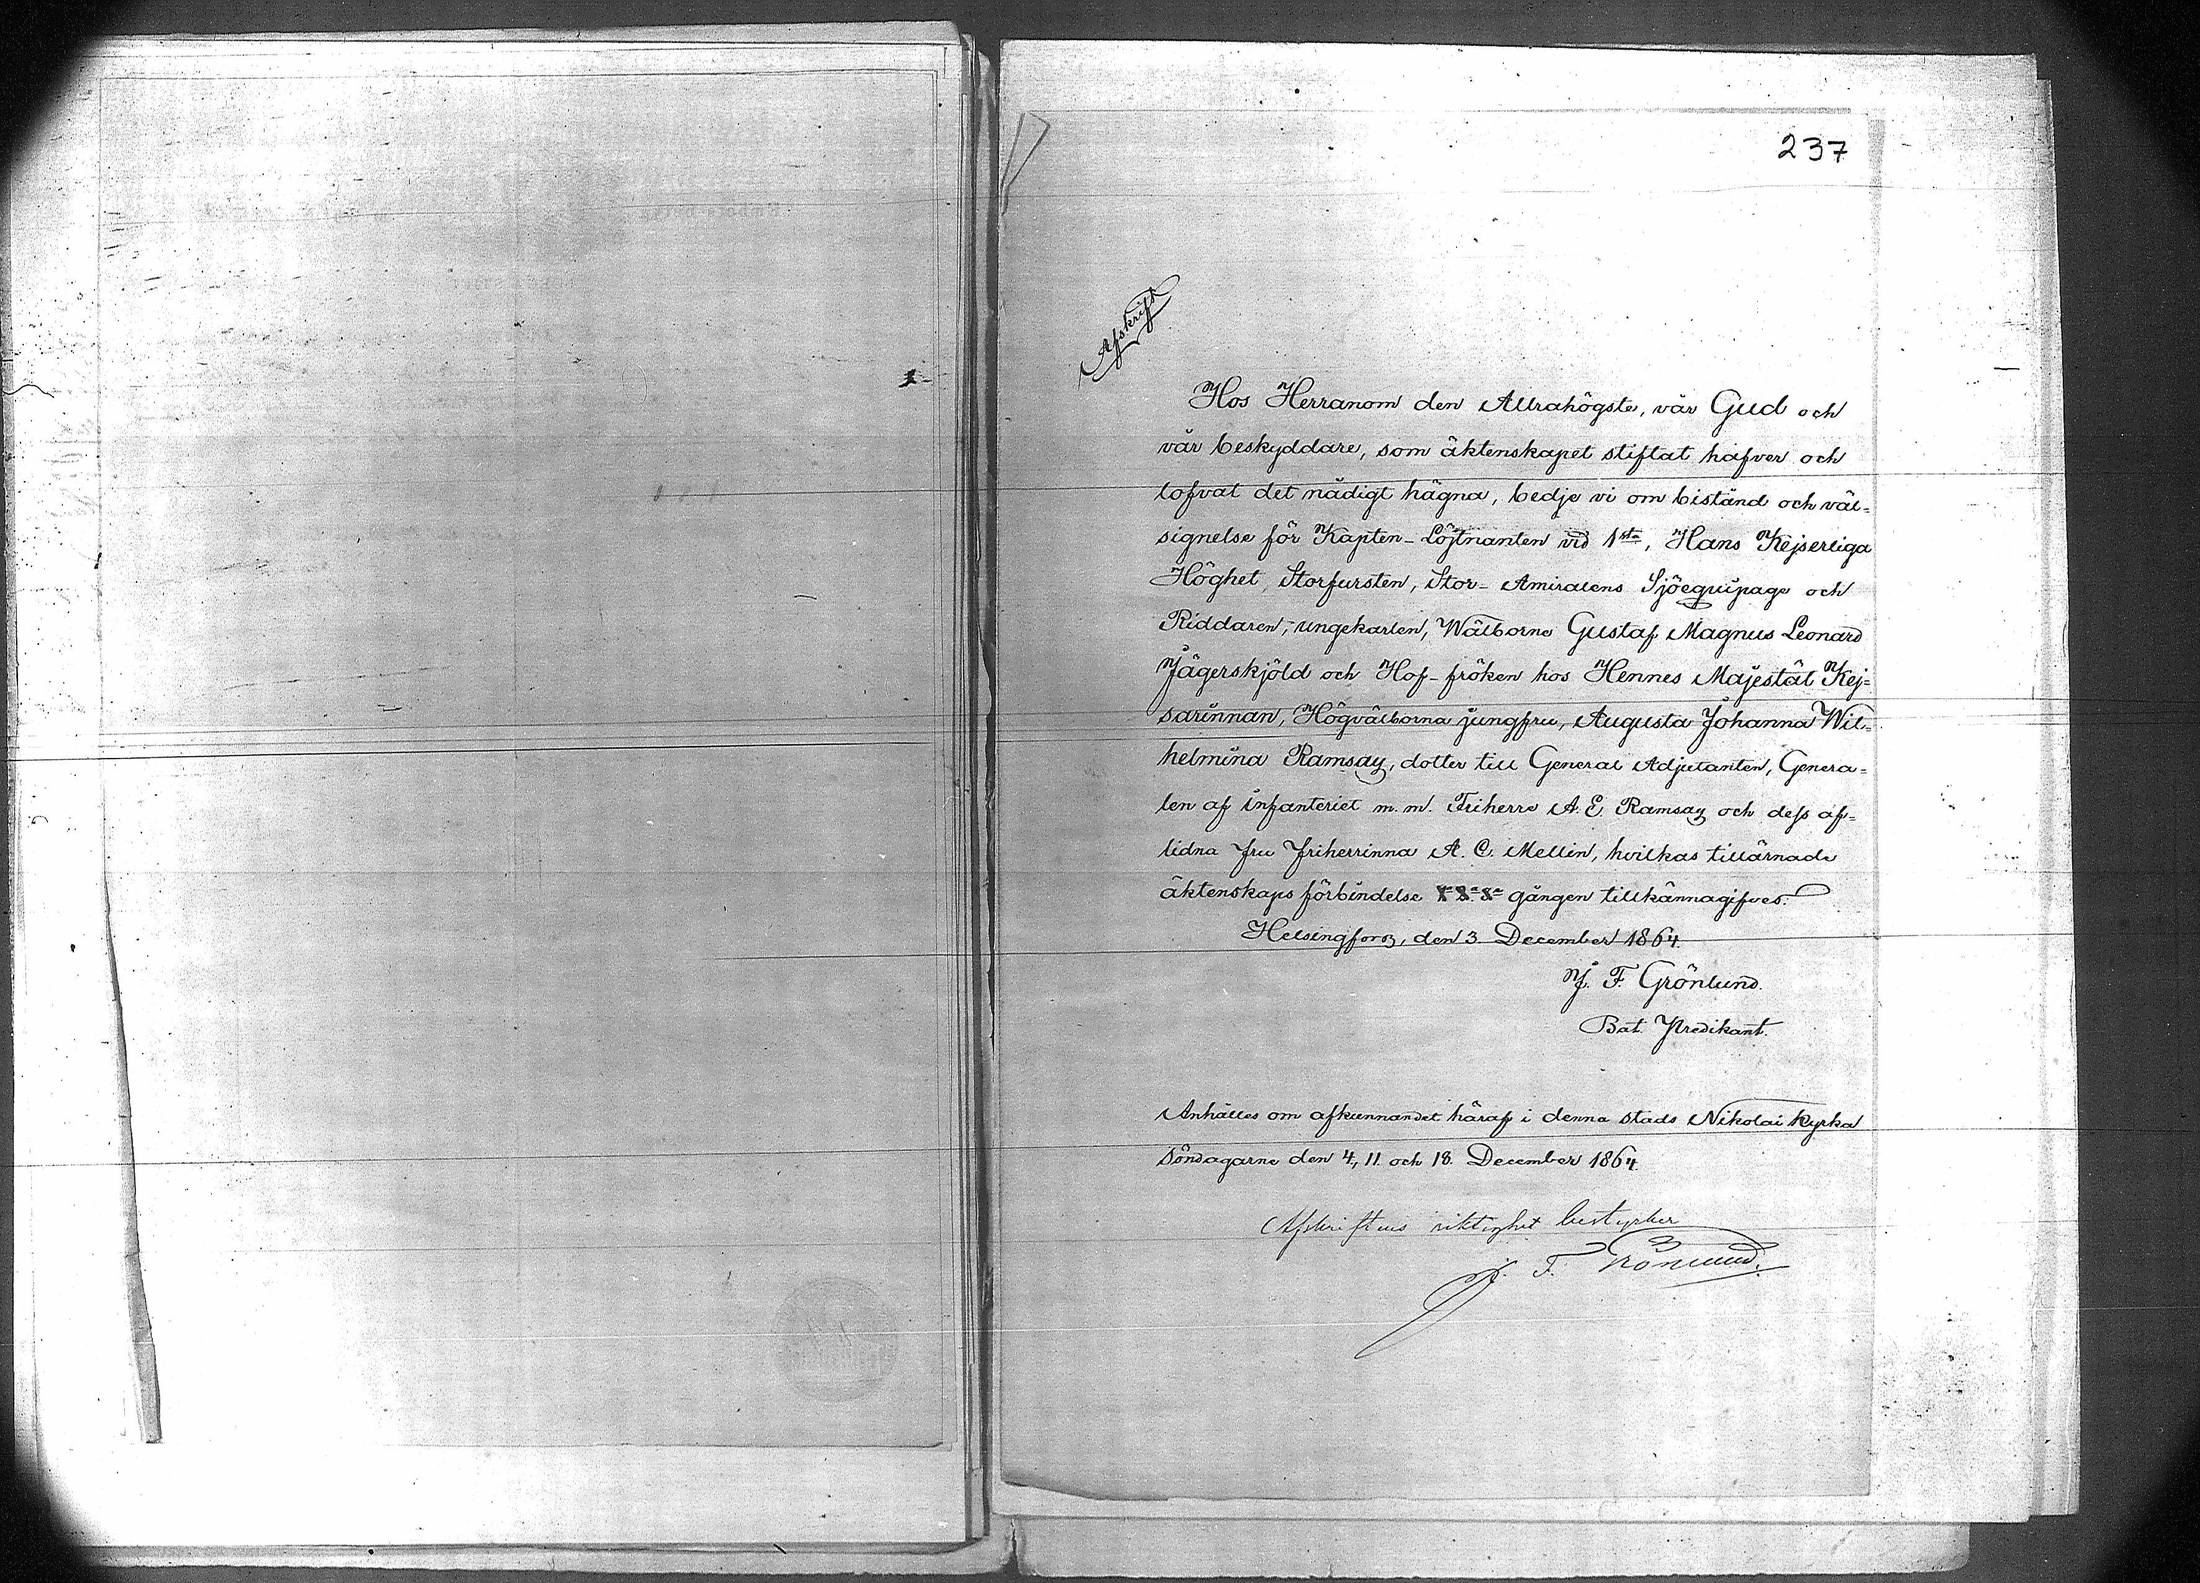 237
Afskrift
Hos Herranom den Allrahögste, vår Gud och
vår beskyddare, som äktenskapet stiftat hafver och
lofvat det nådigt hägna, bedje vi om bistånd och väl-
signelse för Kapten-Löjtnanten vid 1sta, Hans Kejserliga
Höghet, Storfursten, Stor-Amiralens Sjöequipage och
Riddaren, ungekarlen, Wälborne Gustaf Magnus Leonard
Jägerskjöld och Hof-fröken hos Hennes Majestät Kej-
sarinnan, Högvälborna jungfru, Augusta Johanna Wil-
helmina Ramsay, dotter till General Adjutanten, Genera-
len af infanteriet m. m. Friherre A. E. Ramsay och dess af-
lidna fru friherrinna A. C. Mellin, hvilkas tillärnade
äktenskaps förbindelse gången tillkännagifves.
Helsingfors, den 3 December 1864.
J. F. Grönlund.
Bat. Predikant.
Anhålles om afkunnandet häraf i denna stads Nikolai kyrka
söndagarne den 4, 11 och 18. December 1864.
Afskriftens riktighet bestyrker
J. F. Grönlund.